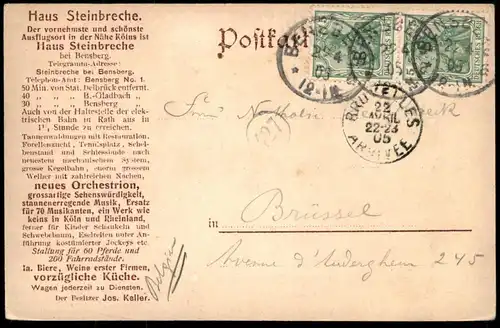 Haus Steinbreche.
Der vornehmste und schönste
Ausflugsort in der Nähe Kölns ist
Haus Steinbreche
bei Bensberg.
Telegramm-Adresse:
Steinbreche bei Bensberg.
Telephon-Amt: Bensberg No. 1.
50 Min. von Stat. Delbrück entfernt.
40 „ „ „ B.-Gladbach „
30 „ „ „ Bensberg „
Auch von der Haltestelle der elek-
trischen Bahn in Rath aus in
1¹/₄ Stunde zu erreichen.
Terrassen-Anlagen mit Restauration.
Forellenzucht, Tennisplatz, Schei-
benstand und Schiessbude nach
neuestem mechanischem System,
grosse Kegelbahn, enorm grossem
Weiher mit zahlreichen Nachen,
neues Orchestrion,
grossartige Sehenswürdigkeit,
staunenerregende Musik, Ersatz
für 70 Musikanten, ein Werk wie
keins in Köln und Rheinland,
ferner für Kinder Schaukeln und
Schwebebaum, Eselreiten unter An-
führung kostümierter Jockeys etc.
Stallung für 60 Pferde und
200 Fahrradstände.
Ia. Biere, Weine erster Firmen,
vorzügliche Küche.
Wagen jederzeit zu Diensten.
Der Besitzer Jos. Keller.
Postkart
BRUXELLES
22
AVRIL
22-23
05
ARRIVÉE
in
Brüssel
Avenue d'Auderghem 245
Belgien